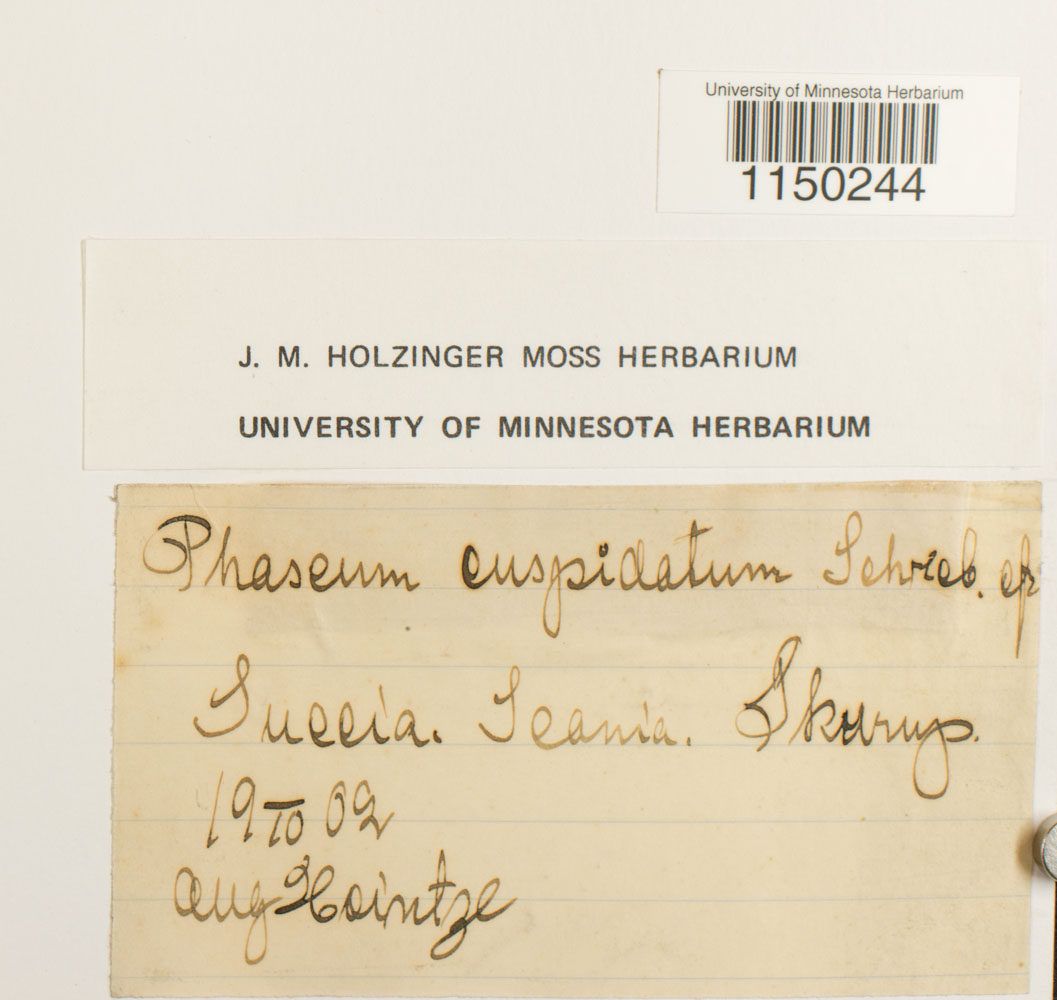 University of Minnesota Herbarium
1150244
J. M. HOLZINGER MOSS HERBARIUM
UNIVERSITY OF MINNESOTA HERBARIUM
Phascum cuspidatum Schreb. cfr
Suecia. Scania. Skurup.
19 10 02
Aug Heintze